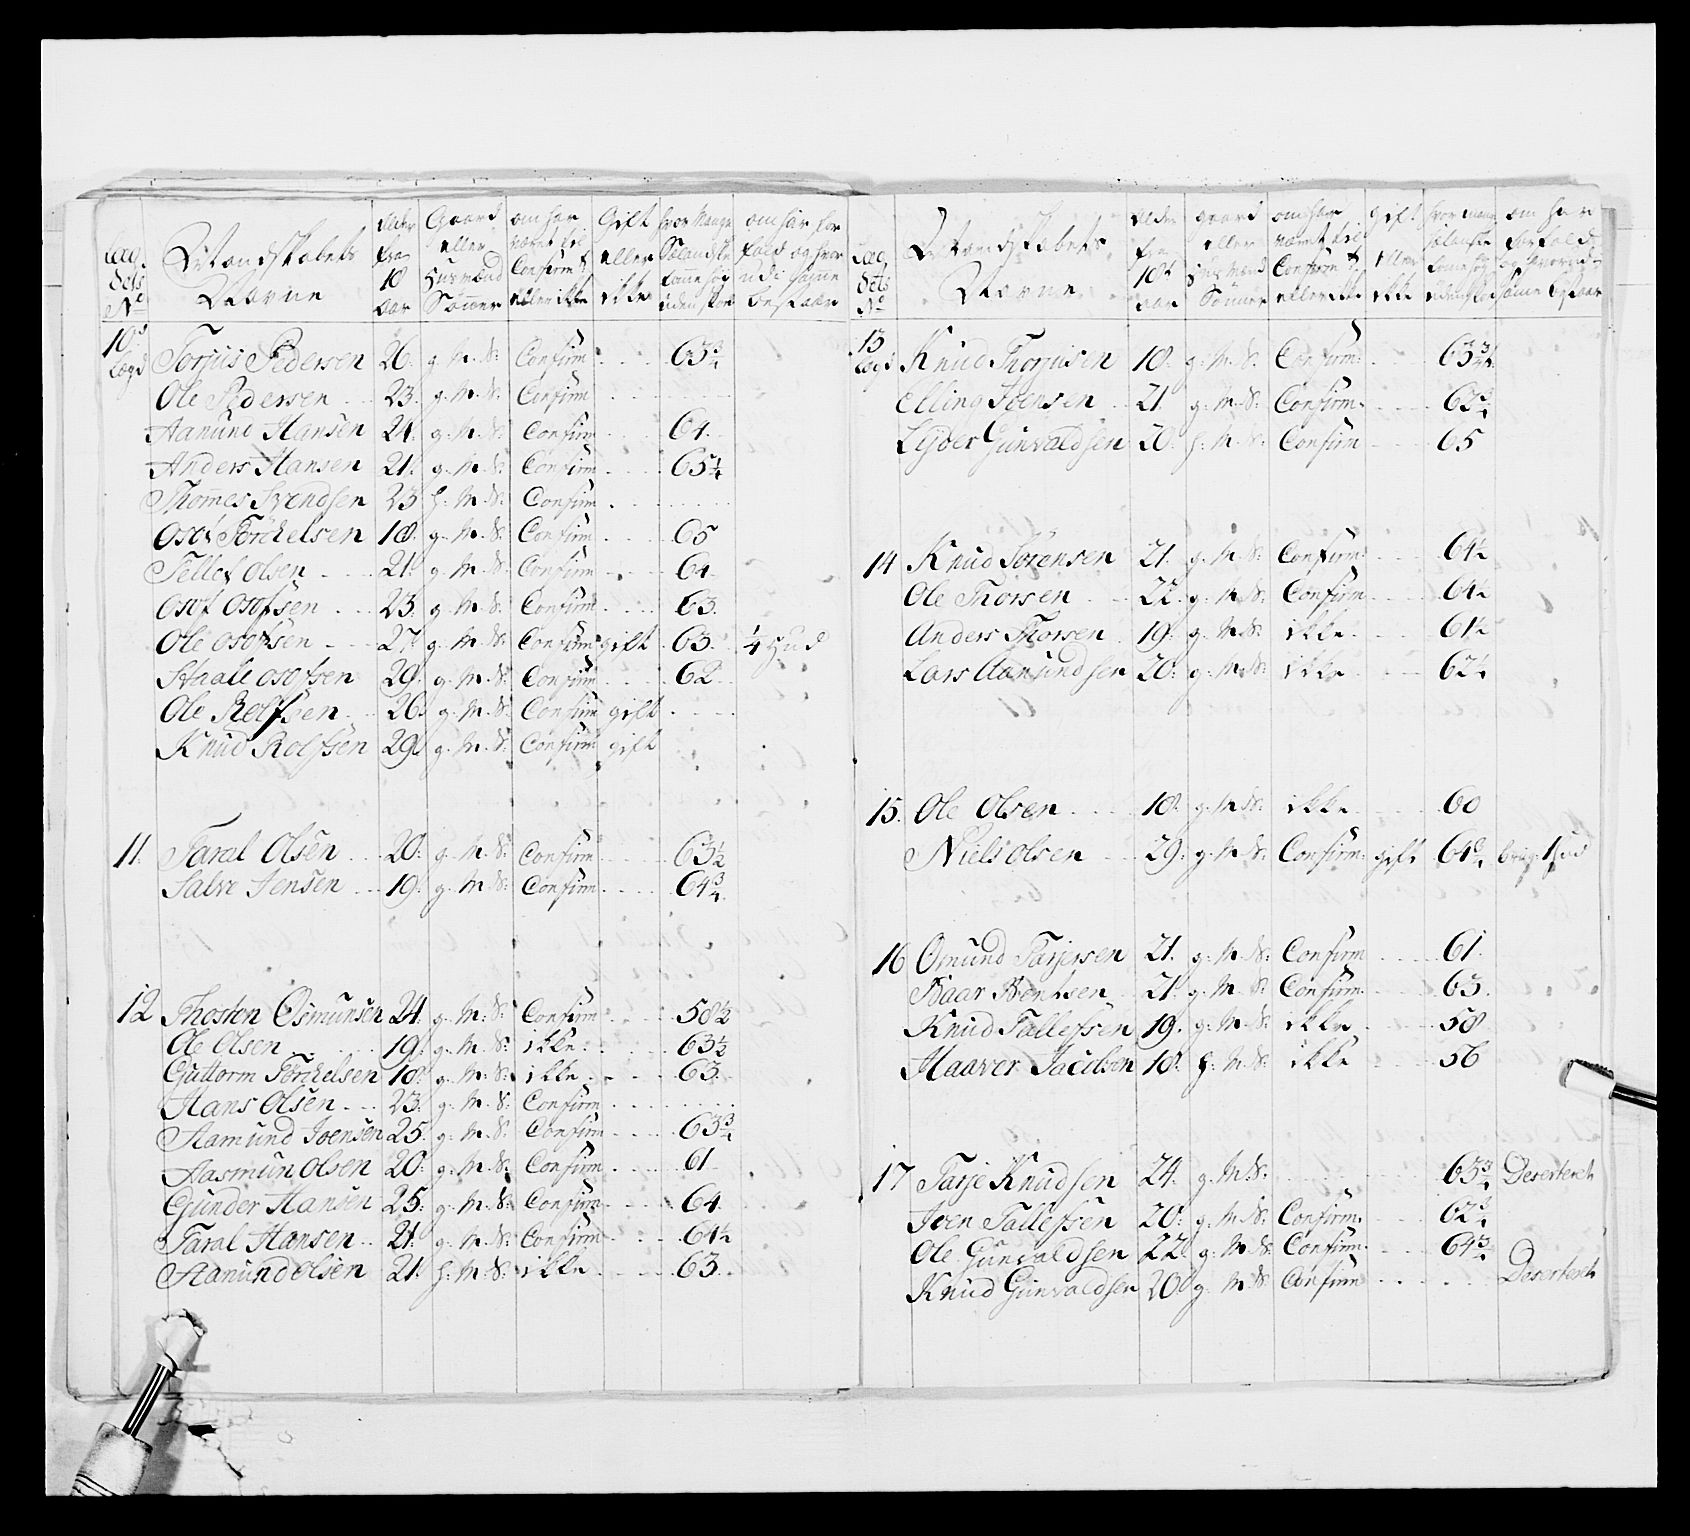 Læg
dets
No
Mandskabets
Navne
Alder
fra
18
Aar
Gaard
eller
Husmænd
Sønner
om har
været til
Confirm:
eller ikke
Gift
eller
ikke
hvor Mange
Sølandske
Tommer og
uden skoe
om har for
fald og hvor
udi samme
bestaar
10de Lægd Torjus Pedersen 26. g. M. S: Confirm 63 3/4
Ole Pedersen 23. g. M. S: Confirm
Aanund Hansen 24. g. M. S: Confirm 64.
Anders Hansen 21. g. M. S: Confirm 65 1/4
Thommes Svendsen 23 h. M. S: Confirm
Osof Torchelsen 18. g. M. S: Confirm 65
Tellef Olsen 21. g. M. S: Confirm 64
Osof Osofsen 23. g. M. S: Confirm 63.
Ole Osofsen 27. g. M. S: Confirm gift 63. 1/4 Hud
Staale Osofsen 29. g. M. S: Confirm 62
Ole Rolfsen 26. g. M. S: Confirm gift
Knud Rolfsen 29. g. M. S: Confirm gift
11. Taral Olsen 20. g. M. S: Confirm 63 1/2
Salve Jensen 19. g. M. S: Confirm 64 3/4
12 Thosten Osmunsen 24. g. M. S: Confirm 58 1/2
Ole Olsen 19. g. M. S: ikke 63 1/2
Guttorm Torchelsen 18. g. M. S: ikke 63
Hans Olsen 23. g. M. S: Confirm
Aamund Joensen 25. g. M. S: Confirm 63 3/4
Aasmun Olsen 20. g. M. S: Confirm 61
Gunder Hansen 25. g. M. S: Confirm 64
Taral Hansen 21. g. M. S: Confirm 64 1/2
Aanund Olsen 21. h. M. S: ikke 63
Læg
dets
No
Mandskabets
Navne
Alder
fra
18
aar
gaard
eller
Husmænd
Sønner
om har
været til
Confirm
eller ikke
gift
eller
ikke
hvor mange
sølanske
tomme og
uden skoe
om har
forfald
og hvorudi
samme bestaar
13 Lægd Knud Thorjusen 18. g. M. S: Confirm: 63 3/4
Elling Joensen 21. g. M. S: Confirm. 63 3/4
Lejder Gunvaldsen 20. h. M. S: Confirm 65
14 Knud Sørensen 21. g. M. S: Confirm: 64 1/2
Ole Thorsen 22. g. M. S: Confirm 64 1/2
Anders Thorsen 19. g. M. S: ikke 61 1/2
Lars Aanundsen 20. g. M. S: ikke 62 1/2
15. Ole Olsen 18. g. M. S: ikke 60
Niels Olsen 29. g. M. S: Confirm: gift 64 1 Hud
16 Omund Tarjersen 21. g. M. S: Confirm 61.
Baar Bentsen 21. g. M. S: Confirm. 63.
Knud Tallefsen 19. g. M. S: ikke 58
Haaver Jacobsen 18. h. M. S: ikke 56
17 Tarje Knudsen 24. g. M. S: 63 3/4 Deserteret
Joen Tallefsen 20. g. M. S: Confirm. 62 3/4
Ole Gunvaldsen 22. g. M. S: Confirm. 64 3/4
Knud Gunvaldsen 20 g. M. S: Confirm Deserteret